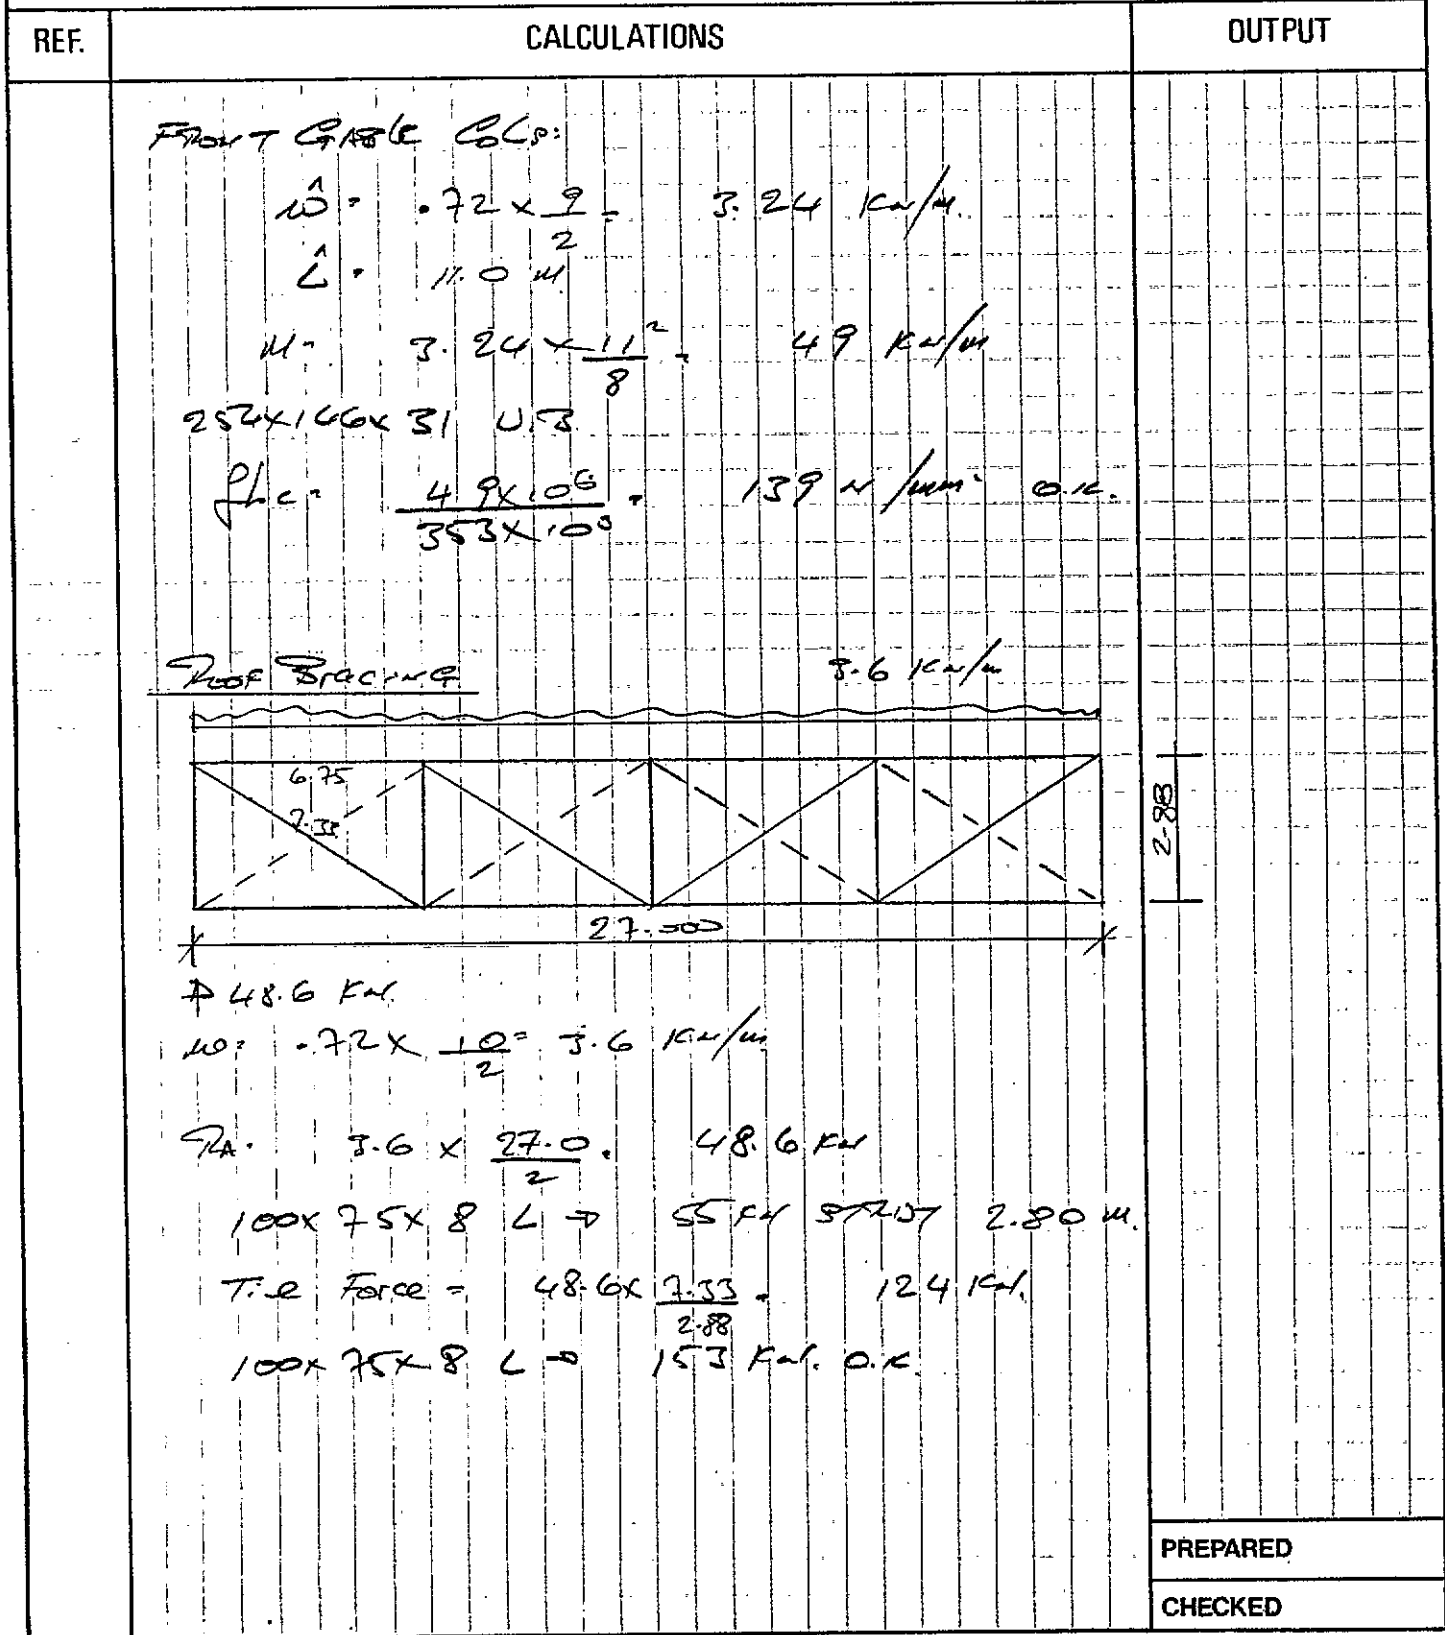 REF.
CALCULATIONS
OUTPUT
FRONT GABLE COLS:
ŵ = .72 x 9/2 = 3.24 KN/M.
L̂ = 11.0 M
M = 3.24 x 11²/8 = 49 KN/m
254x146x31 U.B
fbc = 49x10⁶/353x10³ = 139 N/mm² O.K.
Roof Bracing
3.6 KN/m
6.75
7.33
2.88
27.000
48.6 KN.
w = .72 x 10/2 = 3.6 KN/m
RA = 3.6 x 27.0/2 = 48.6 KN
100x75x8 L ⇒ 55 KN STRUT 2.80 M.
Tie Force = 48.6x 7.33/2.88 = 124 KN.
100x75x8 L ⇒ 153 KN. O.K.
PREPARED
CHECKED